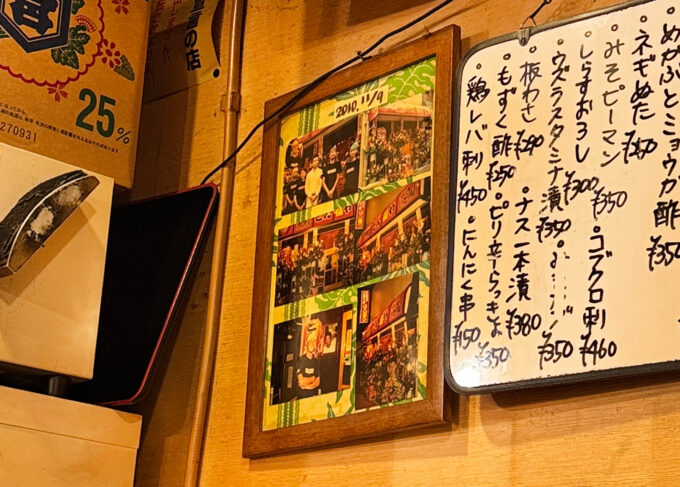 めかぶとミョウガ酢 ¥350
ネギぬた ¥450
みそピーマン ¥350
・コブクロ刺 ¥460
・しらすおろし ¥300
・ウズラスタミナ漬 ¥350
¥350
・板わさ ¥290
・ナス一本漬 ¥380
・もずく酢 ¥250
・ピリ辛らっきょ ¥350
・鶏レバ刺 ¥450
・にんにく串 ¥150
2010. 11/9
の店
25%
270931